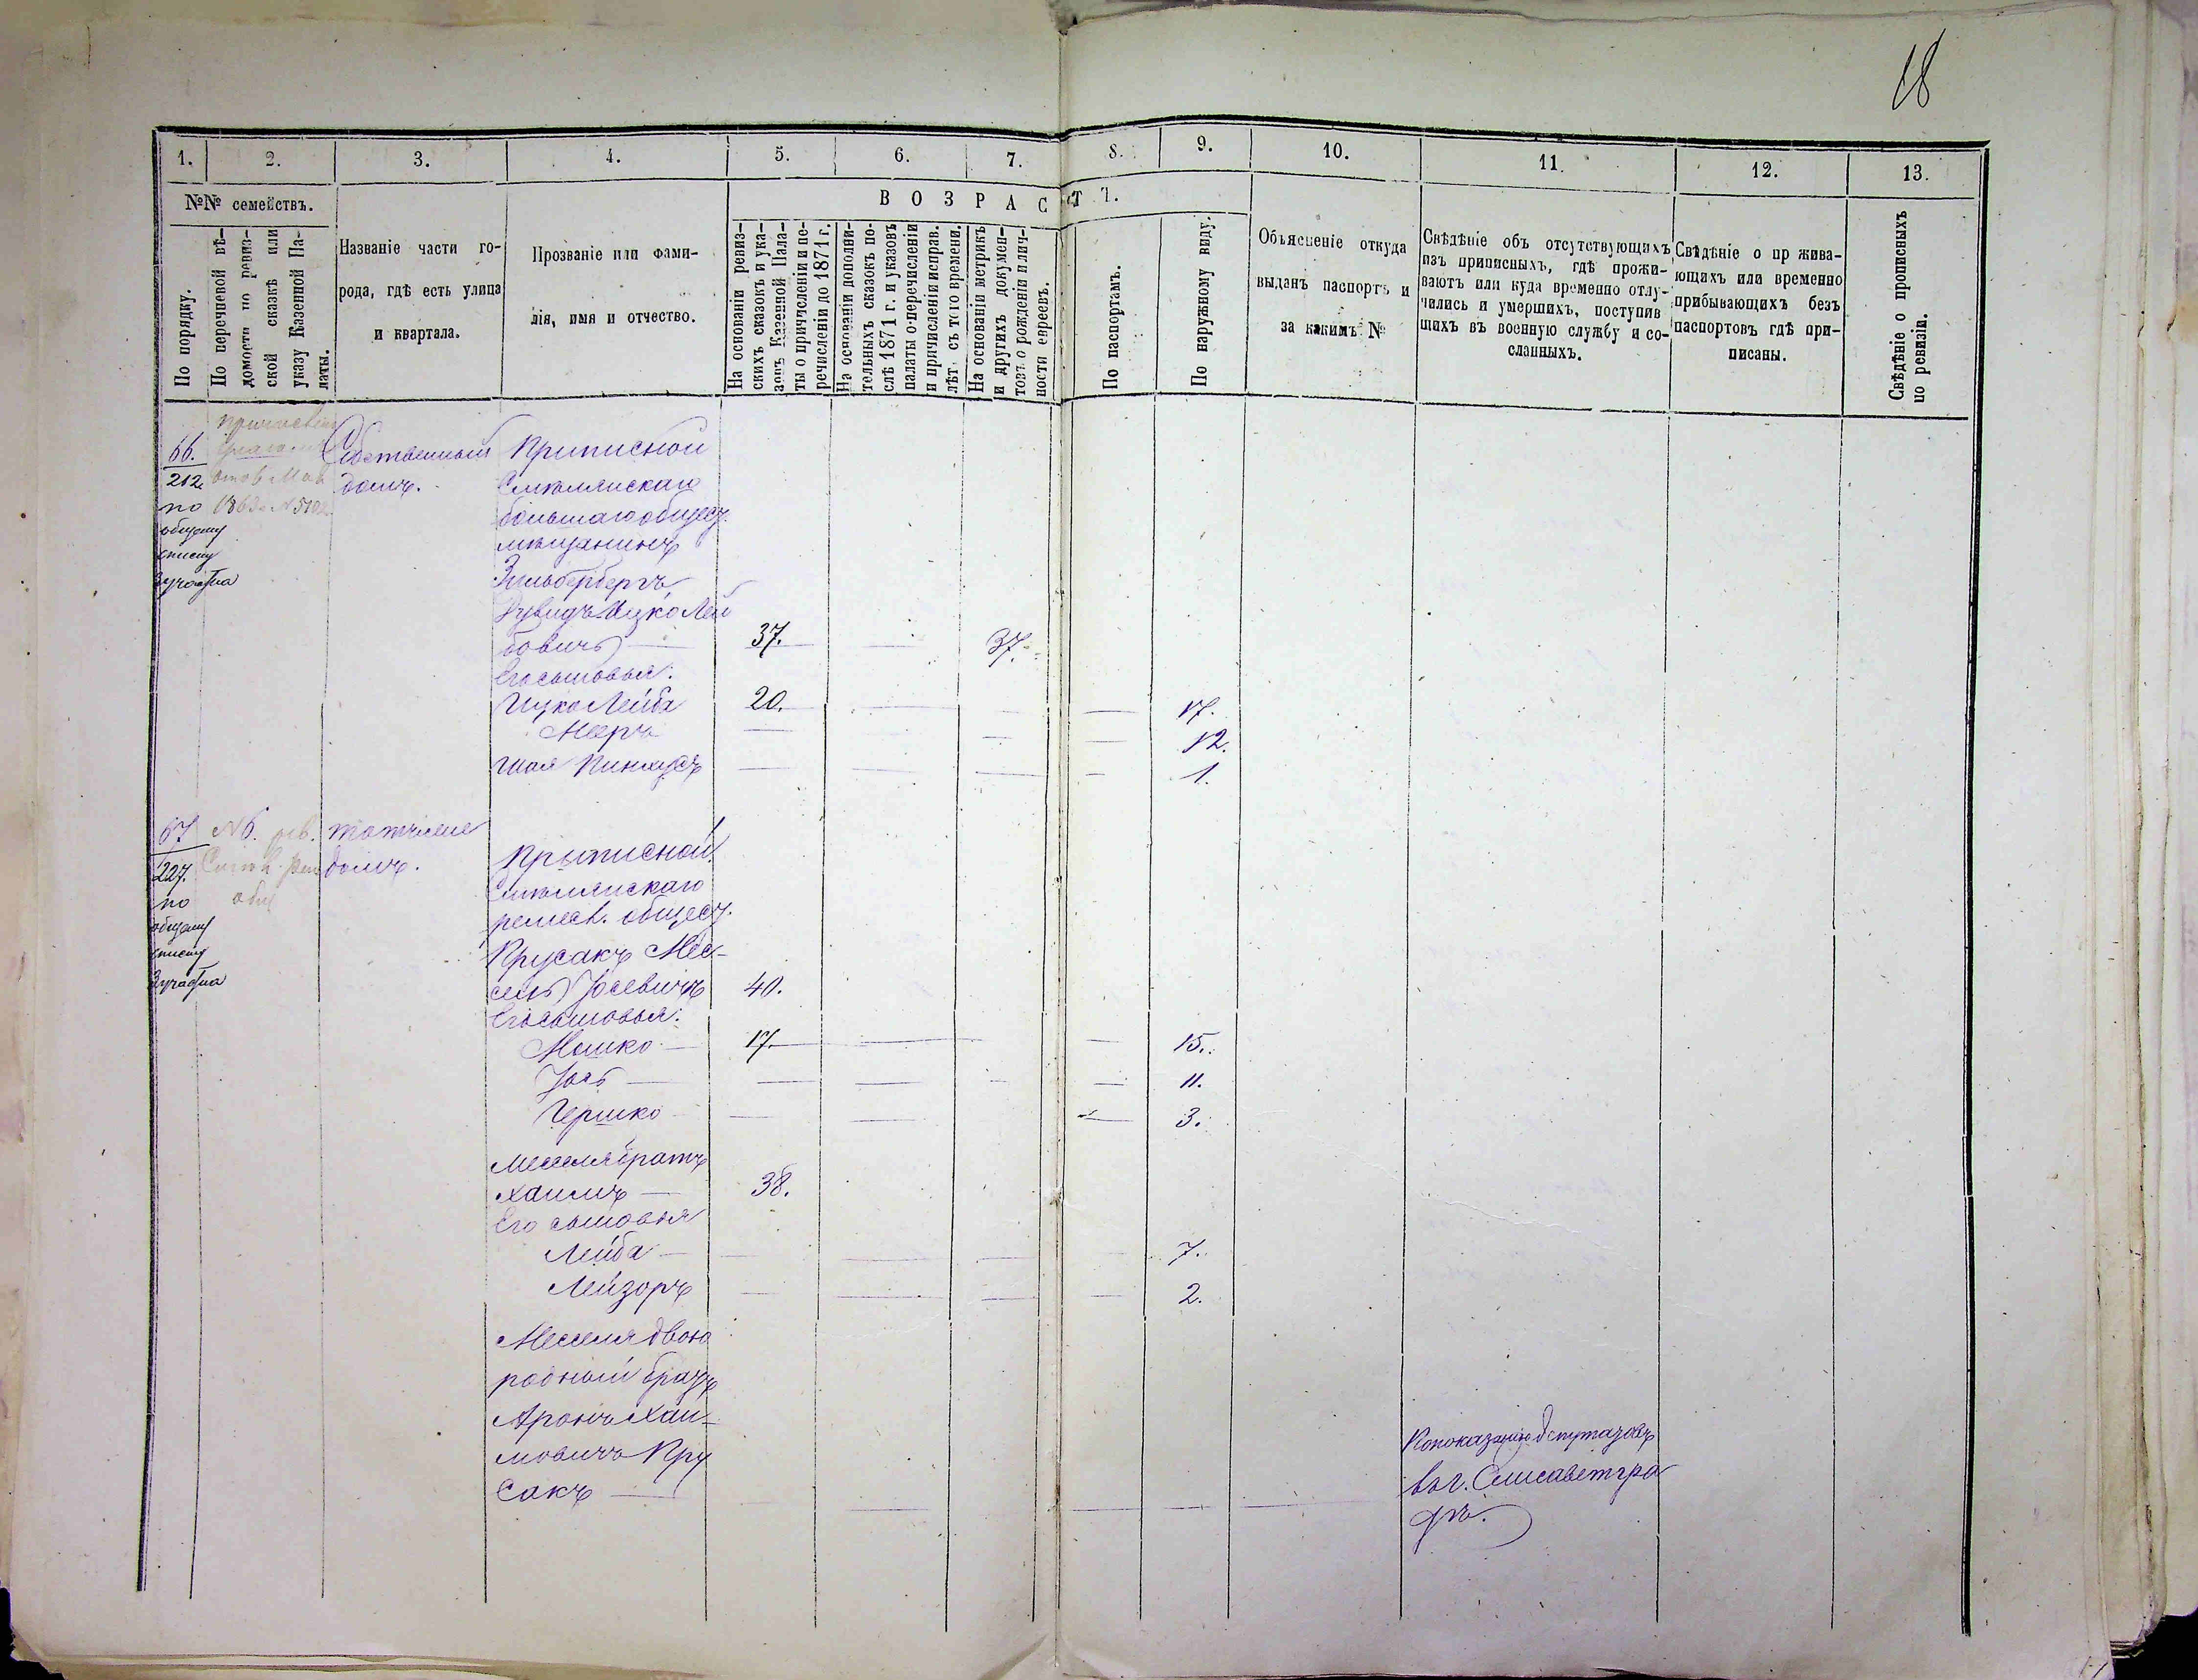 18
1. 2. 3. 4. 5. 6. 7. 8. 9. 10. 11. 12. 13.
№№ семействъ.
В О З Р А С Т Ъ.
По порядку.
По перечневой вѣ-
домости по ревиз-
ской сказкѣ или
указу Казенной Па-
латы.
Названіе части го-
рода, гдѣ есть улица
и квартала.
Прозваніе или фами-
лія, имя и отчество.
На основаніи ревиз-
скихъ сказокъ и ука-
зовъ Казенной Пала-
ты о причисленіи и пе-
речисленіи до 1871 г.
На основаніи дополни-
тельныхъ сказокъ по-
слѣ 1871 г. и указовъ
палаты о перечисленіи
и причисленіи исправ.
лѣт. съ того времени.
На основаніи метрикъ
и другихъ докумен-
товъ о рожденіи и лич-
ности евреевъ.
По паспортамъ.
По наружному виду.
Объясненіе откуда
выданъ паспортъ и
за какимъ №
Свѣдѣніе объ отсутствующихъ
изъ приписныхъ, гдѣ прожи-
ваютъ или куда временно отлу-
чились и умершихъ, поступив
шихъ въ военную службу и со-
сланныхъ.
Свѣдѣніе о пр жива-
ющихъ или временно
прибывающихъ безъ
паспортовъ гдѣ при-
писаны.
Свѣдѣніе о прописныхъ
по ревизіи.
66. Собственный Приписной
212 домъ. Смѣлянскаго
по 1863 большаго общест.
общему мѣщанинъ
списку Зильбербергъ
3 участка Дувидъ Ицко Лей
бовичъ 37. 37.
Его сыновья:
Ицко Лейба 20. 17.
Мееръ 12.
Шая Пинхусъ 1.
67 №6. тотже
227. домъ. Приписной
по Смѣлянскаго
общему ремесл. общест.
списку Прусакъ Мес-
3 участка сель Іосевичъ 40.
Его сыновья:
Мошко 17. 15.
Іось 11.
Гершко 3.
Меселя братъ
Хаимъ 38.
Его сыновья
Лейба 7.
Лейзоръ 2.
Меселя двою
родный братъ
Аронъ Хаи-
мовичъ Пру
сакъ
По показанію депутатовъ
въ г. Елисаветгра
дѣ.